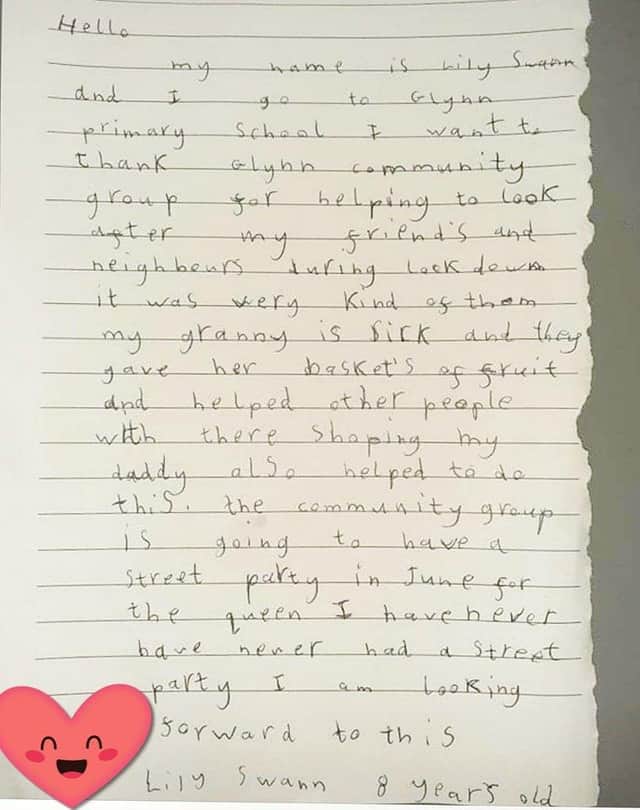 Hello
my name is Lily Swann
and I go to Glynn
primary School I want to
thank Glynn community
group for helping to look
after my friend's and
neighbours during lock down
it was very kind of them
my granny is sick and they
gave her basket's of fruit
and helped other people
with there shoping my
daddy also helped to do
this. the community group
is going to have a
street party in June for
the queen I have never
have never had a street
party I am looking
forward to this
Lily Swann 8 years old